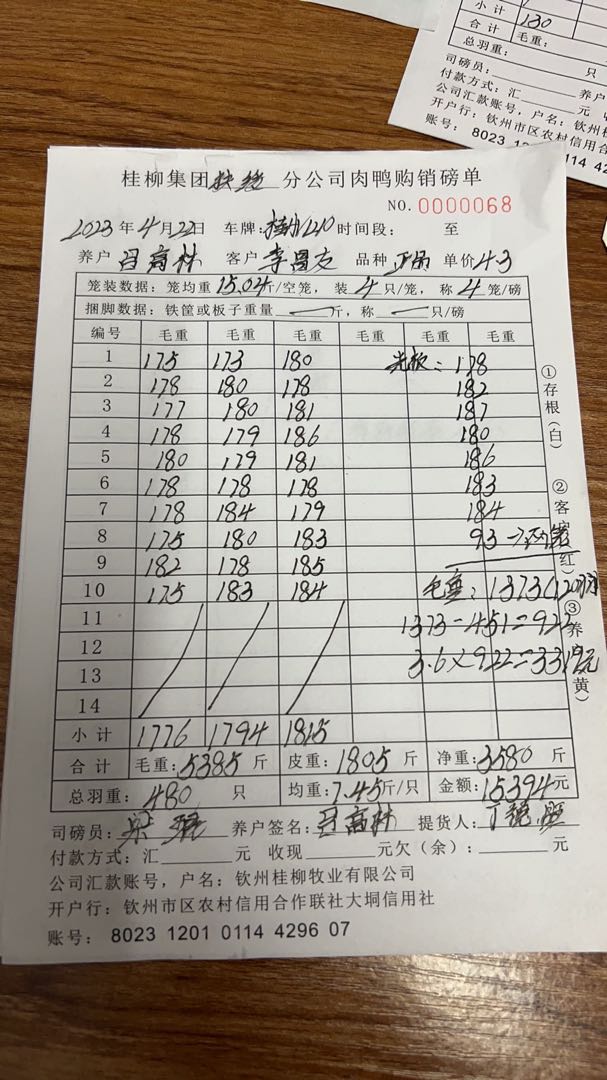 小计
合计 130 毛重:
总羽重: 只
司磅员: 养户
付款方式: 汇 元
公司汇款账号, 户名: 钦州桂
开户行: 钦州市区农村信用合
账号: 8023 114 42
桂柳集团扶绥分公司肉鸭购销磅单
NO. 0000068
2023年4月22日 车牌: 时间段: 至
养户 吕高林 客户 李昌友 品种 单价 4.3
笼装数据: 笼均重15.04斤/空笼, 装4只/笼, 称4笼/磅
捆脚数据: 铁筐或板子重量 — 斤, 称 — 只/磅
编号 毛重 毛重 毛重 毛重 毛重 毛重
1 175 173 180 光板: 178
2 178 180 178 182
3 177 180 181 187
4 178 179 186 180
5 180 179 181 186
6 178 178 178 183
7 178 184 179 184
8 175 180 183 93→两笼
9 182 178 185
10 175 183 184 毛重: 1373(120羽)
11 1373-451=922
12 3.6×922=3319元
13
14
小计 1776 1794 1815
合计 毛重: 5385 斤 皮重: 1805 斤 净重: 3580 斤
总羽重: 480 只 均重: 7.45斤/只 金额: 15394元
司磅员: 养户签名: 吕高林 提货人:
付款方式: 汇 元 收现 元欠(余): 元
公司汇款账号, 户名: 钦州桂柳牧业有限公司
开户行: 钦州市区农村信用合作联社大垌信用社
账号: 8023 1201 0114 4296 07
①存根(白)
②客户(红)
③养户(黄)